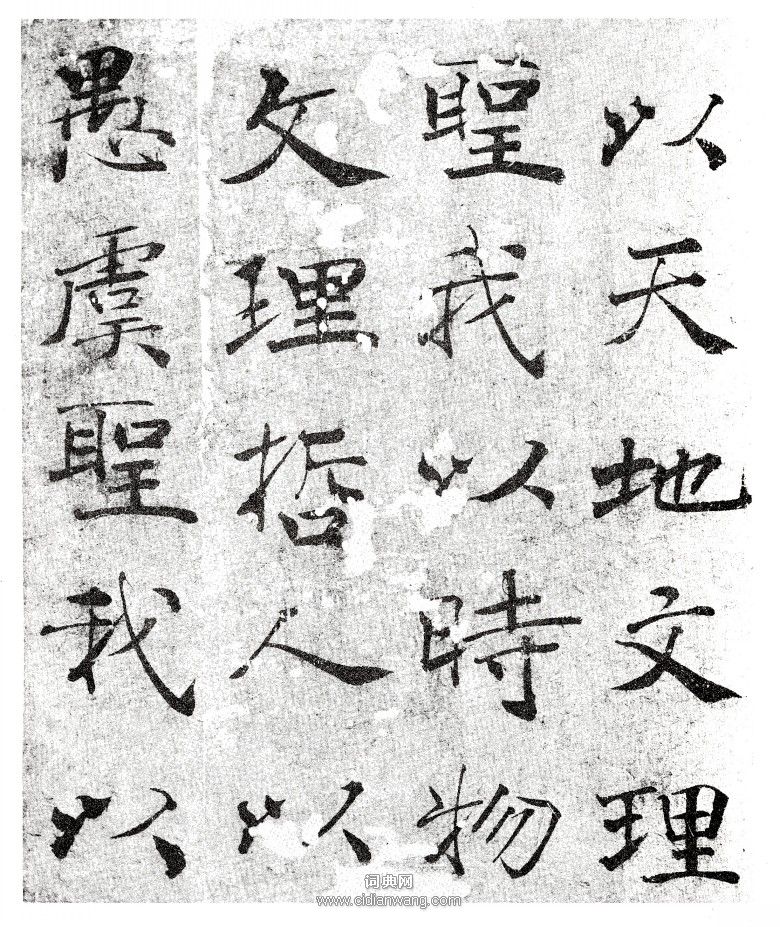 以天地文理
聖我以時物
文理哲人以
愚虞聖我以
词典网
www.cidianwang.com